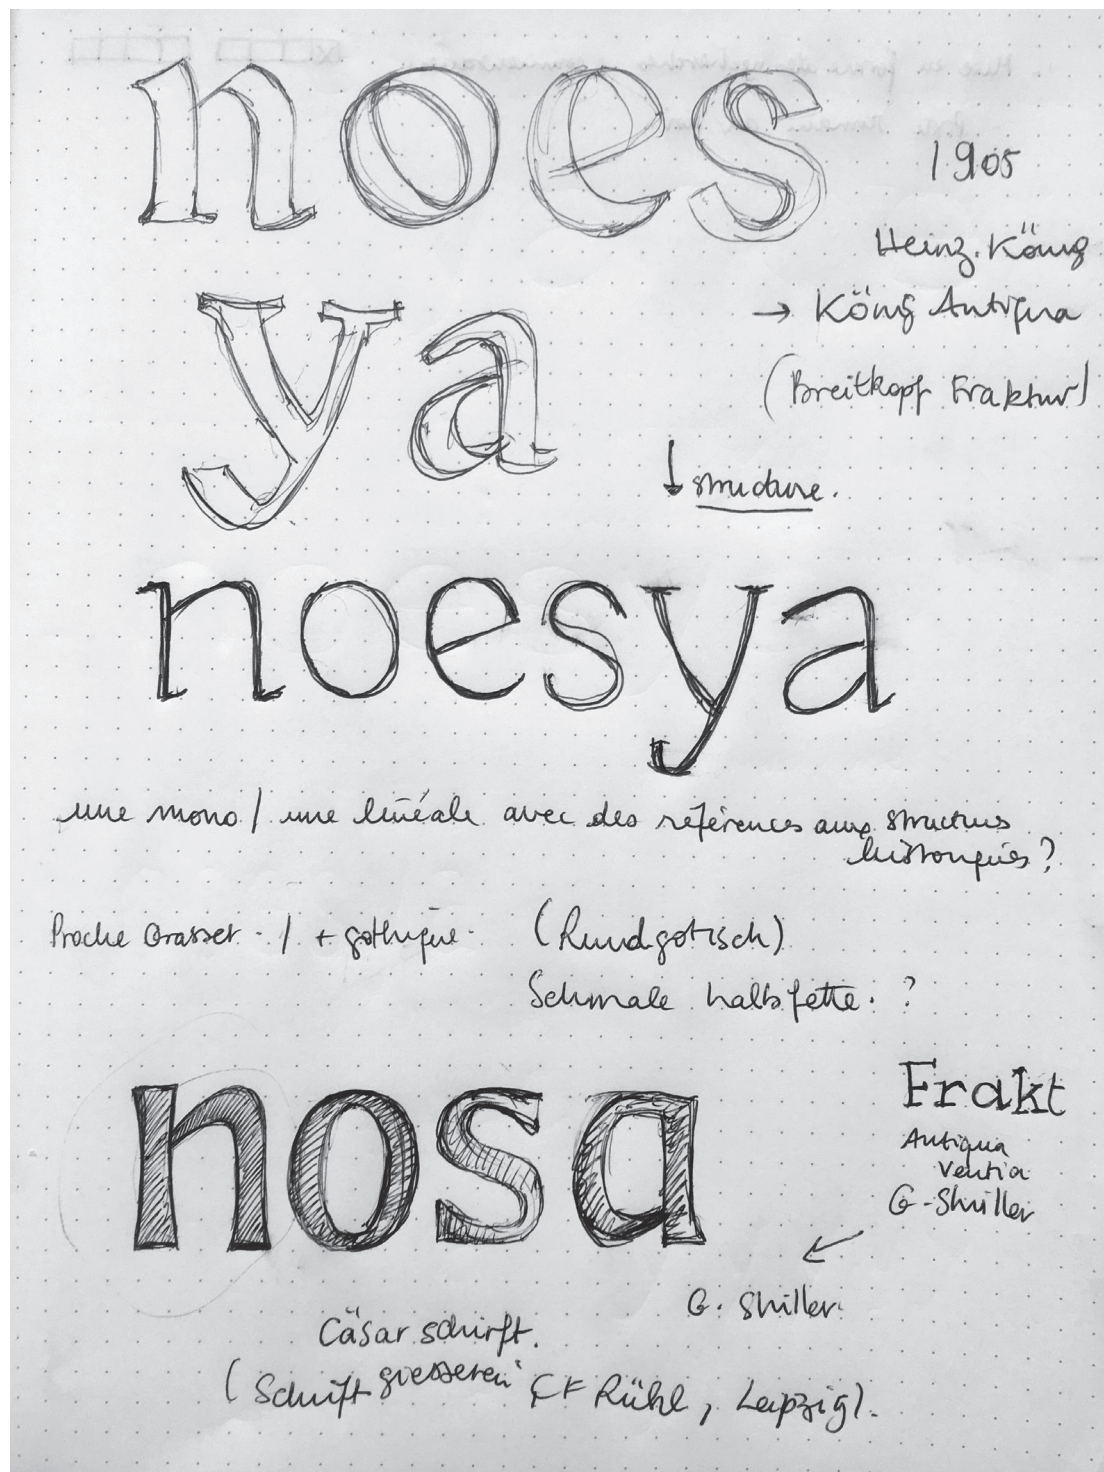 noes
1905
Heinz. König
ya
→ König Antiqua
(Breitkopf Fraktur)
↓ structure.
noesya
une mono / une linéale avec des références aux structures
historiques ?
Proche Grasset - / + gothique. (Rundgotisch)
Schmale halbfette. ?
nosa
Frakt
Antiqua
G-Shriller
G. Shiller
Cäsar schrift.
(Schriftgiesserei CF Rühl, Leipzig).